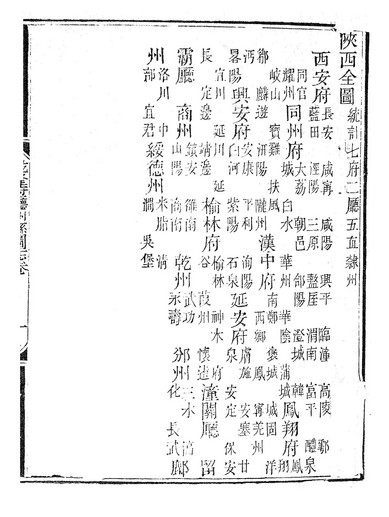 陝西全圖 統計七府二廳五直隸州
西安府 長安 咸寧 咸陽 興平 臨潼 高陵 鄠 藍田 涇陽 三原 盩厔 渭南 富平 醴泉
同官 耀州 同州府 大荔 朝邑 郃陽 澄城 韓城 白水 華州 華陰 蒲城 鳳翔府 鳳翔
岐山 寶雞 扶風 郿 麟遊 汧陽 隴州 漢中府 南鄭 褒城 城固 洋 西鄉 鳳 寧羌州
沔 畧陽 興安府 安康 平利 洵陽 白河 紫陽 石泉 延安府 膚施 安塞 甘泉 安定 保安
宜川 延川 延長 定邊 靖邊 榆林府 榆林 神木 府谷 葭州 懷遠 潼關廳 留
霸廳 商州 鎮安 雒南 山陽 商南 乾州 武功 永壽 邠州 三水 淳化 長武 鄜
州 洛川 中部 宜君 綏德州 米脂 清澗 吳堡